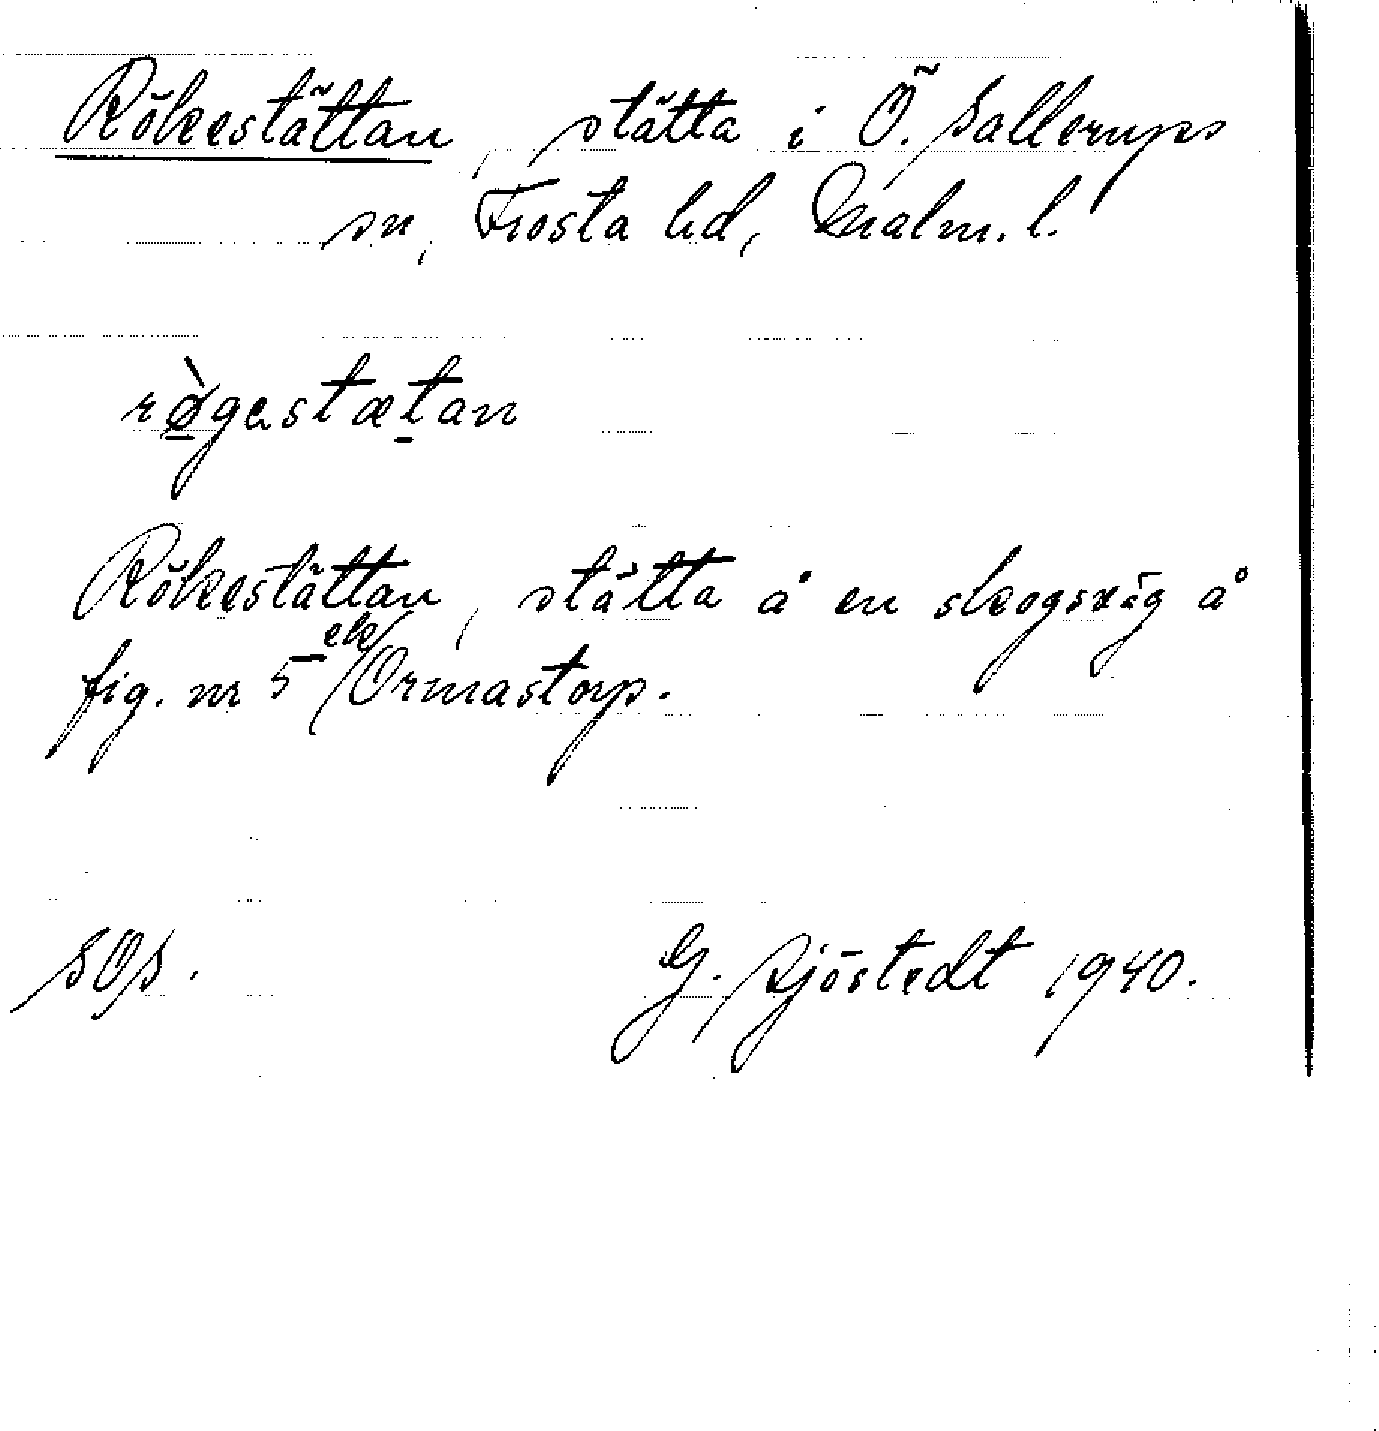 Rökestättan, stätta i Ö. Sallerups
sn, Frosta hd, Malm. l.
rø̀gestætan
Rökestättan, stätta å en skogsväg å
fig. nr 5 ek/Ormastorp.
SOS.
G. Sjöstedt 1940.